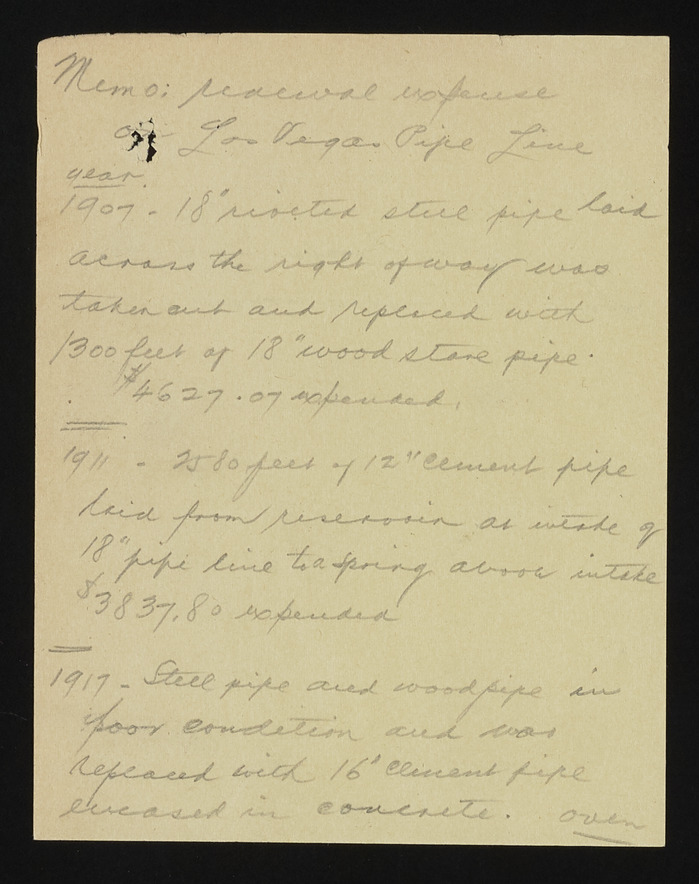 Memo: renewal expense
on Los Vegas Pipe Line
year.
1907 - 18" riveted steel pipe laid
across the right of way was
taken out and replaced with
1300 feet of 18" wood stave pipe.
$4627.07 expended.
1911 - 2580 feet of 12" cement pipe
laid from reservoir at intake of
18" pipe line to a spring above intake
$3837.80 expended
1917 - Steel pipe and wood pipe in
poor condition and was
replaced with 16" cement pipe
encased in concrete. over